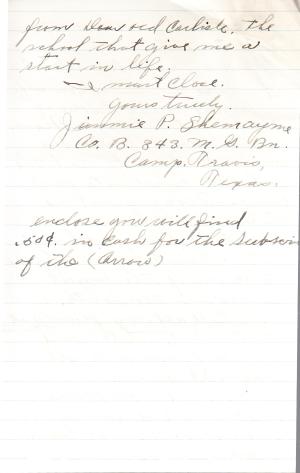 from Dear old Carlisle. The
school that give me a
start in life.
I must close.
Yours truly.
Jimmie P. Shemayme
Co. B. 343. M. G. Bn.
Camp. Travis,
Texas.
enclose you will find
.50¢. in cash for the subscri
of the (Arrow)